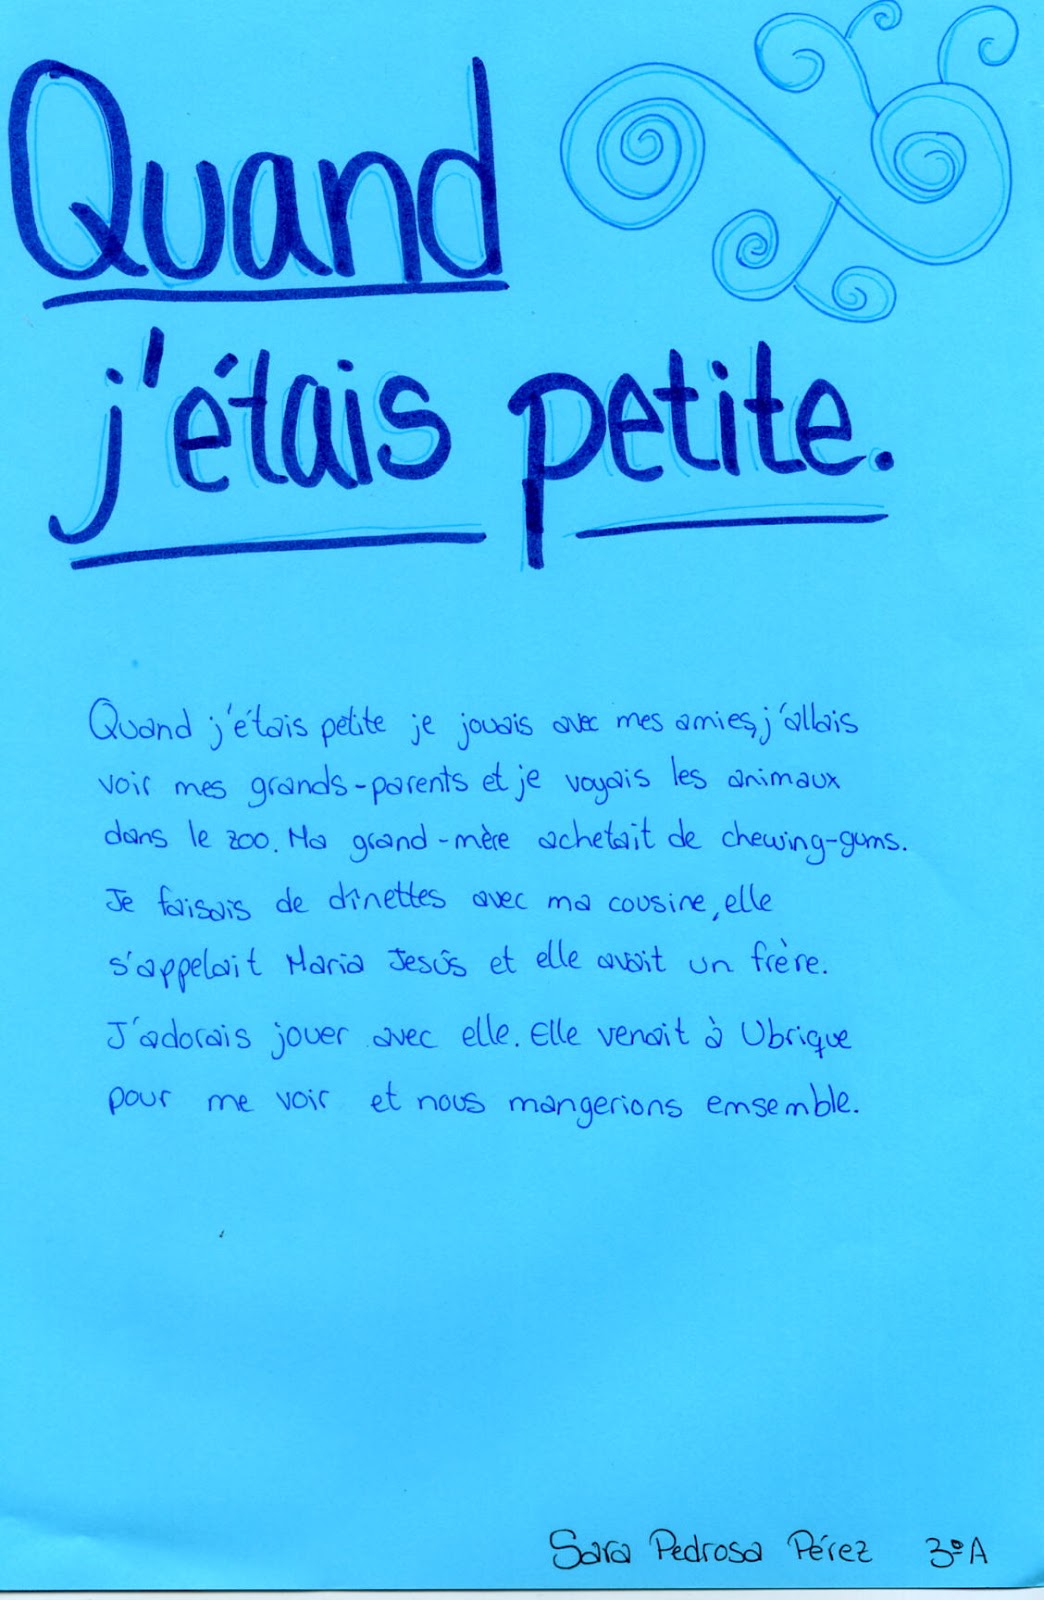 Quand
j'étais petite.
Quand j'étais petite je jouais avec mes amies, j'allais
voir mes grands-parents et je voyais les animaux
dans le zoo. Ma grand-mère achetait de chewing-gums.
Je faisais de dînettes avec ma cousine, elle
s'appelait Maria Jesús et elle avait un frère.
J'adorais jouer avec elle. Elle venait à Ubrique
pour me voir et nous mangerions emsemble.
Sara Pedrosa Pérez 3ºA